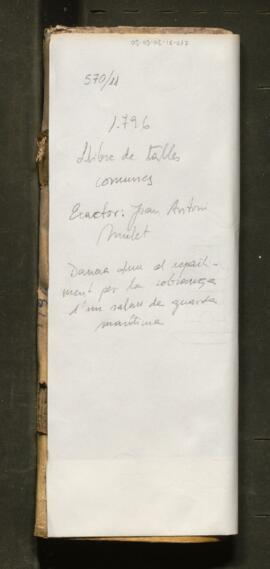 570/11
1.796
Llibre de talles
comunes
Exactor: Joan Antoni
Mulet
Darrera el reparti-
ment per la cobrança
d'un salari de guarda
marítima